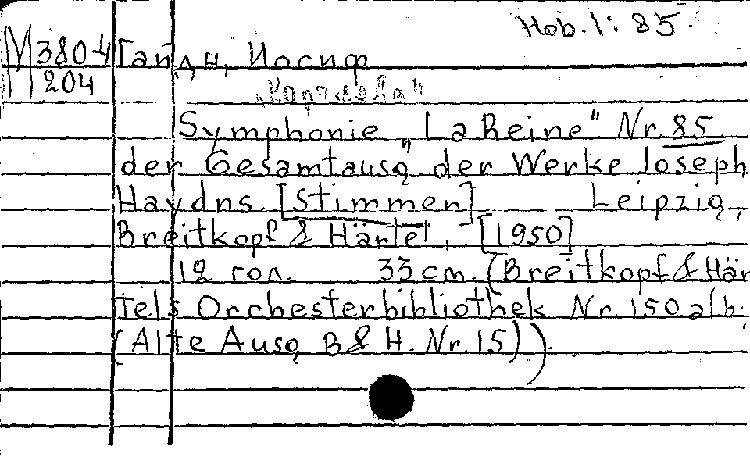 Hob. I: 85.
М 380-4 Гайдн, Иосиф
204
„Королева"
Symphonie „La Reine" Nr. 85
der Gesamtausg. der Werke Joseph
Haydns [Stimmen] Leipzig,
Breitkopf & Härtel, [1950]
12 гол. 33 cm. (Breitkopf & Här
tels Orchesterbibliothek Nr. 150 a/b.
(Alte Ausg. B & H. Nr. 15))